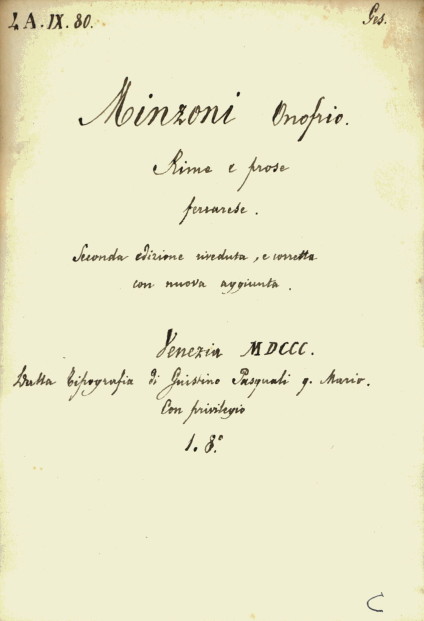 LA.IX.80.
Ges.
Minzoni Onofrio.
Rime e prose
ferrarese.
Seconda edizione riveduta, e corretta
con nuova aggiunta.
Venezia MDCCC.
Dalla Tipografia di Giustino Pasquali q. Mario.
Con privilegio
1. 8.°
C